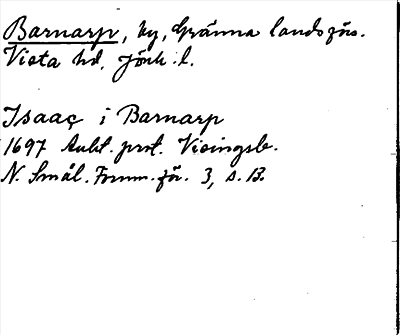 Barnarp, by, Gränna landsförs.
Vista hd, Jönk. l.
Isaac i Barnarp
1697 Aukt. prot. Visingsb.
N. Smål. Fornm. för. 3, s. 13.